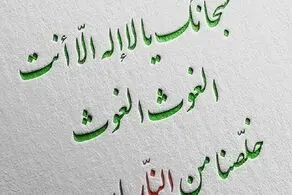 سبحانك يا لا إله الّا أنت
الغوث الغوث
خلّصنا من النّار